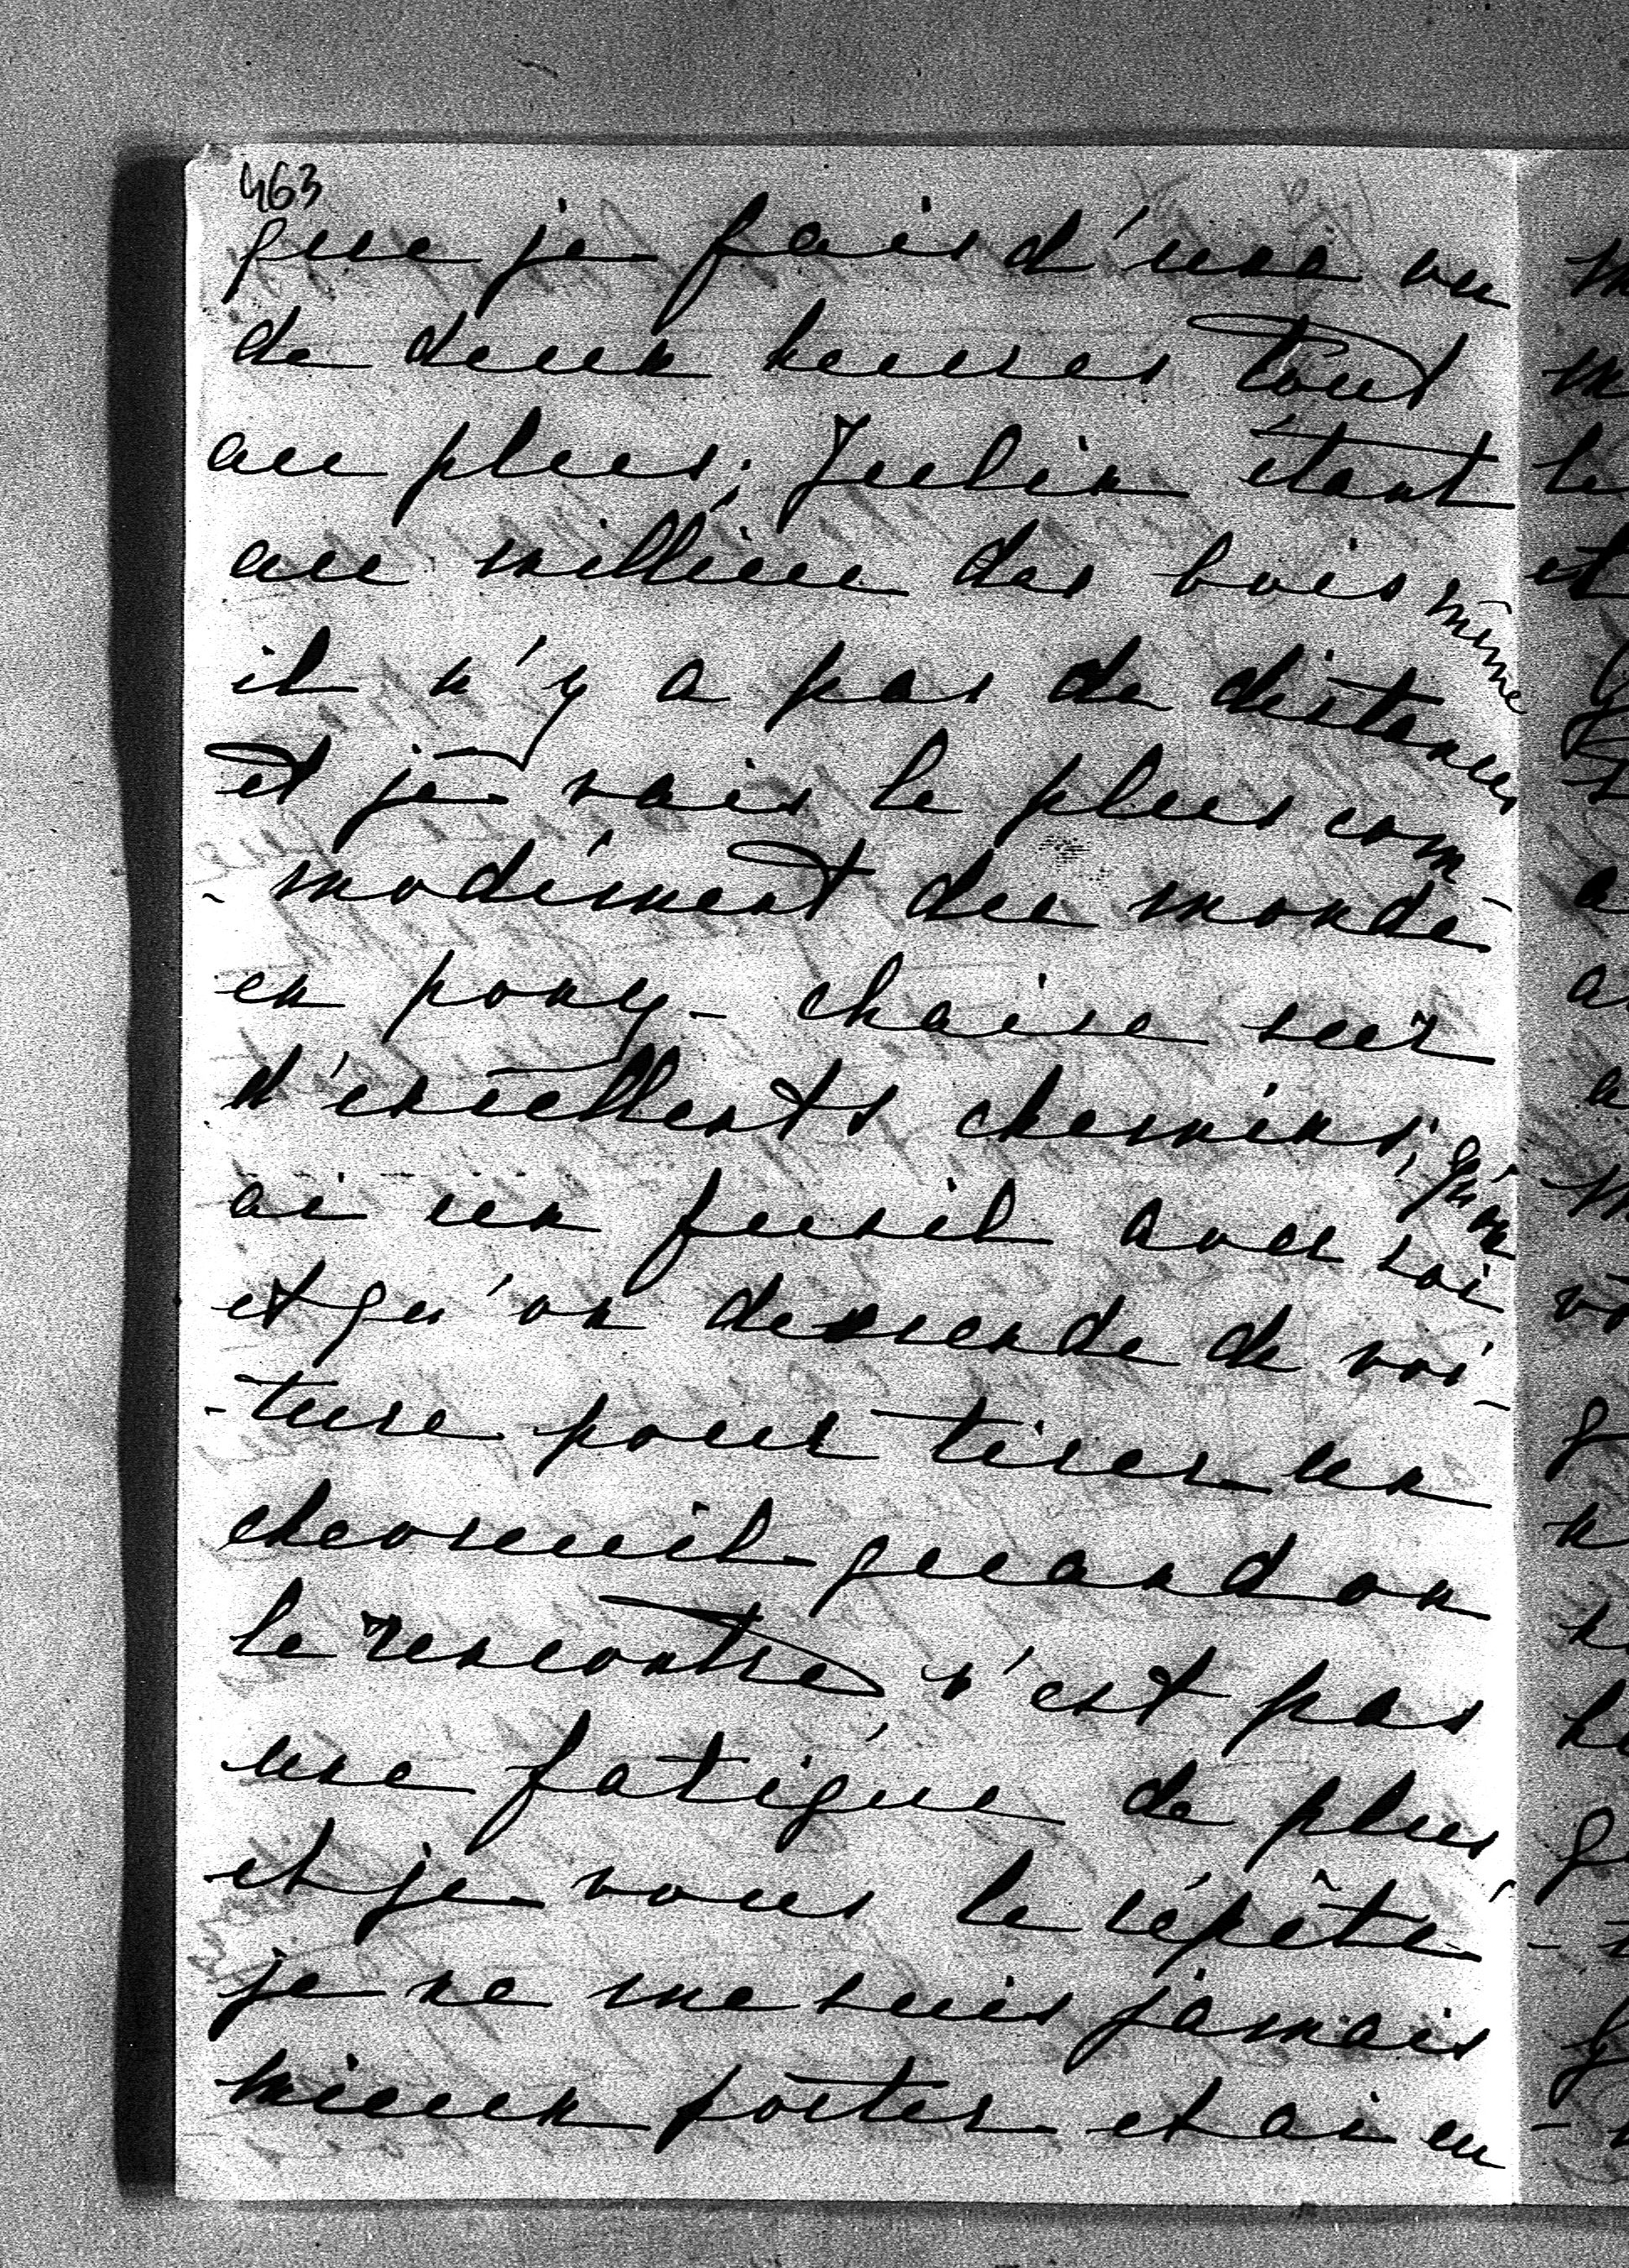 463
que je fais d'une ou
de deux heures tout
au plus; Julin étant
au millieu des bois même
il n'y a pas de distances
et je vais le plus com-
-modément du monde
en pony-chaise sur
d'excellents chemins; qu'on
ai un fusil avec soi
et qu'on descende de voi-
-ture pour tirer un
chevreuil quand on
le rencontre n'est pas
une fatigue de plus
et je vous le répète
je ne me suis jamais
mieux porter et ai eu